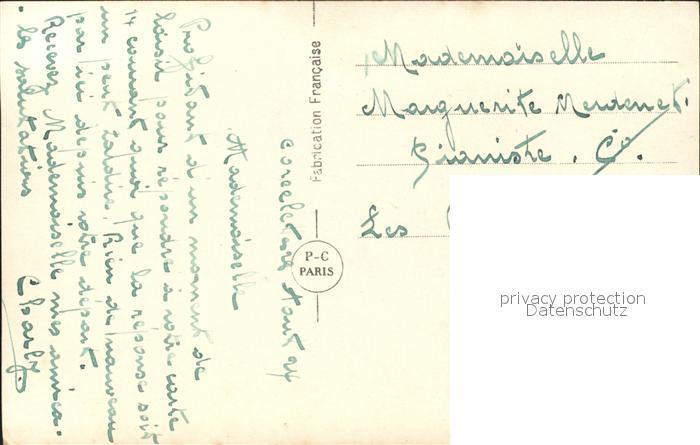 Mademoiselle
Profitant d'un moment de
loisir pour répondre à votre carte
14 courant ainsi que la réponse soit
un peu tardive. Rien de nouveau
par ici depuis votre départ.
Recevez Mademoiselle mes amica-
les salutations
Charly.
Fabrication Française
P-C
PARIS
Mademoiselle
Marguerite
Pianiste. Co.
Les
privacy protection
Datenschutz